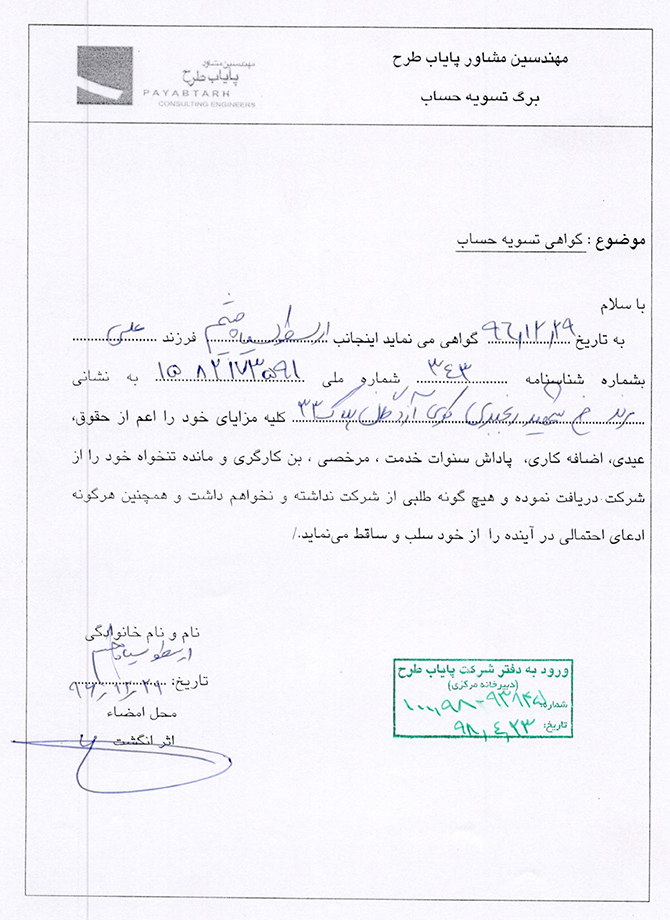 مهندسین مشاور پایاب طرح
برگ تسویه حساب
مهندسین مشاور
پایاب طرح
PAYABTARH
CONSULTING ENGINEERS
موضوع : گواهی تسویه حساب
با سلام
به تاریخ ۹۶/۱۲/۲۹ گواهی می نماید اینجانب ارسطو سیاه چشم فرزند علی
بشماره شناسنامه ۳۴۳ شماره ملی به نشانی
شهید کوی پلاک ۳۳ کلیه مزایای خود را اعم از حقوق،
عیدی، اضافه کاری، پاداش سنوات خدمت ، مرخصی ، بن کارگری و مانده تنخواه خود را از
شرکت دریافت نموده و هیچ گونه طلبی از شرکت نداشته و نخواهم داشت و همچنین هرگونه
ادعای احتمالی در آینده را از خود سلب و ساقط می‌نماید./
نام و نام خانوادگی
ارسطو سیاه چشم
تاریخ: ۹۶/۱۲/۲۹
محل امضاء
اثر انگشت
ورود به دفتر شرکت پایاب طرح
(دبیرخانه مرکزی)
شماره:
تاریخ: ۹۸/۴/۲۳